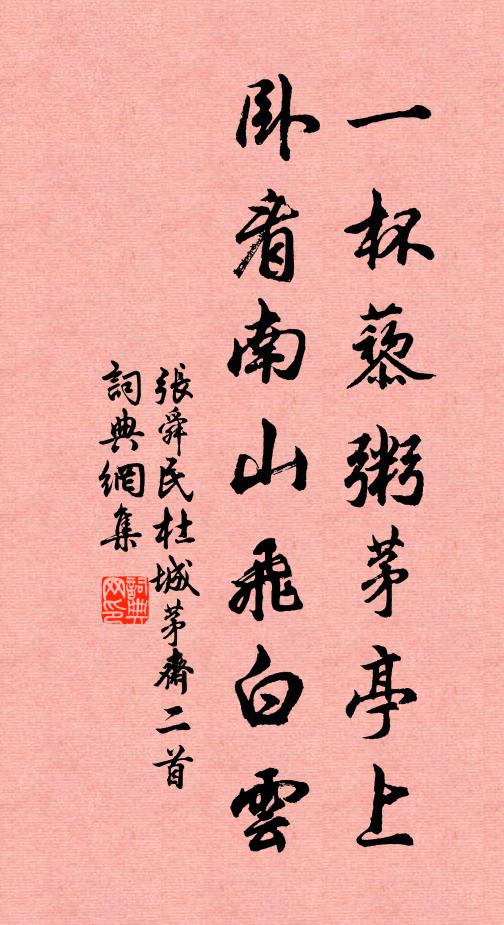 一杯藜粥茅亭上
卧看南山飛白雲
張舜民杜城茅齋二首
詞典網集
詞典
网印